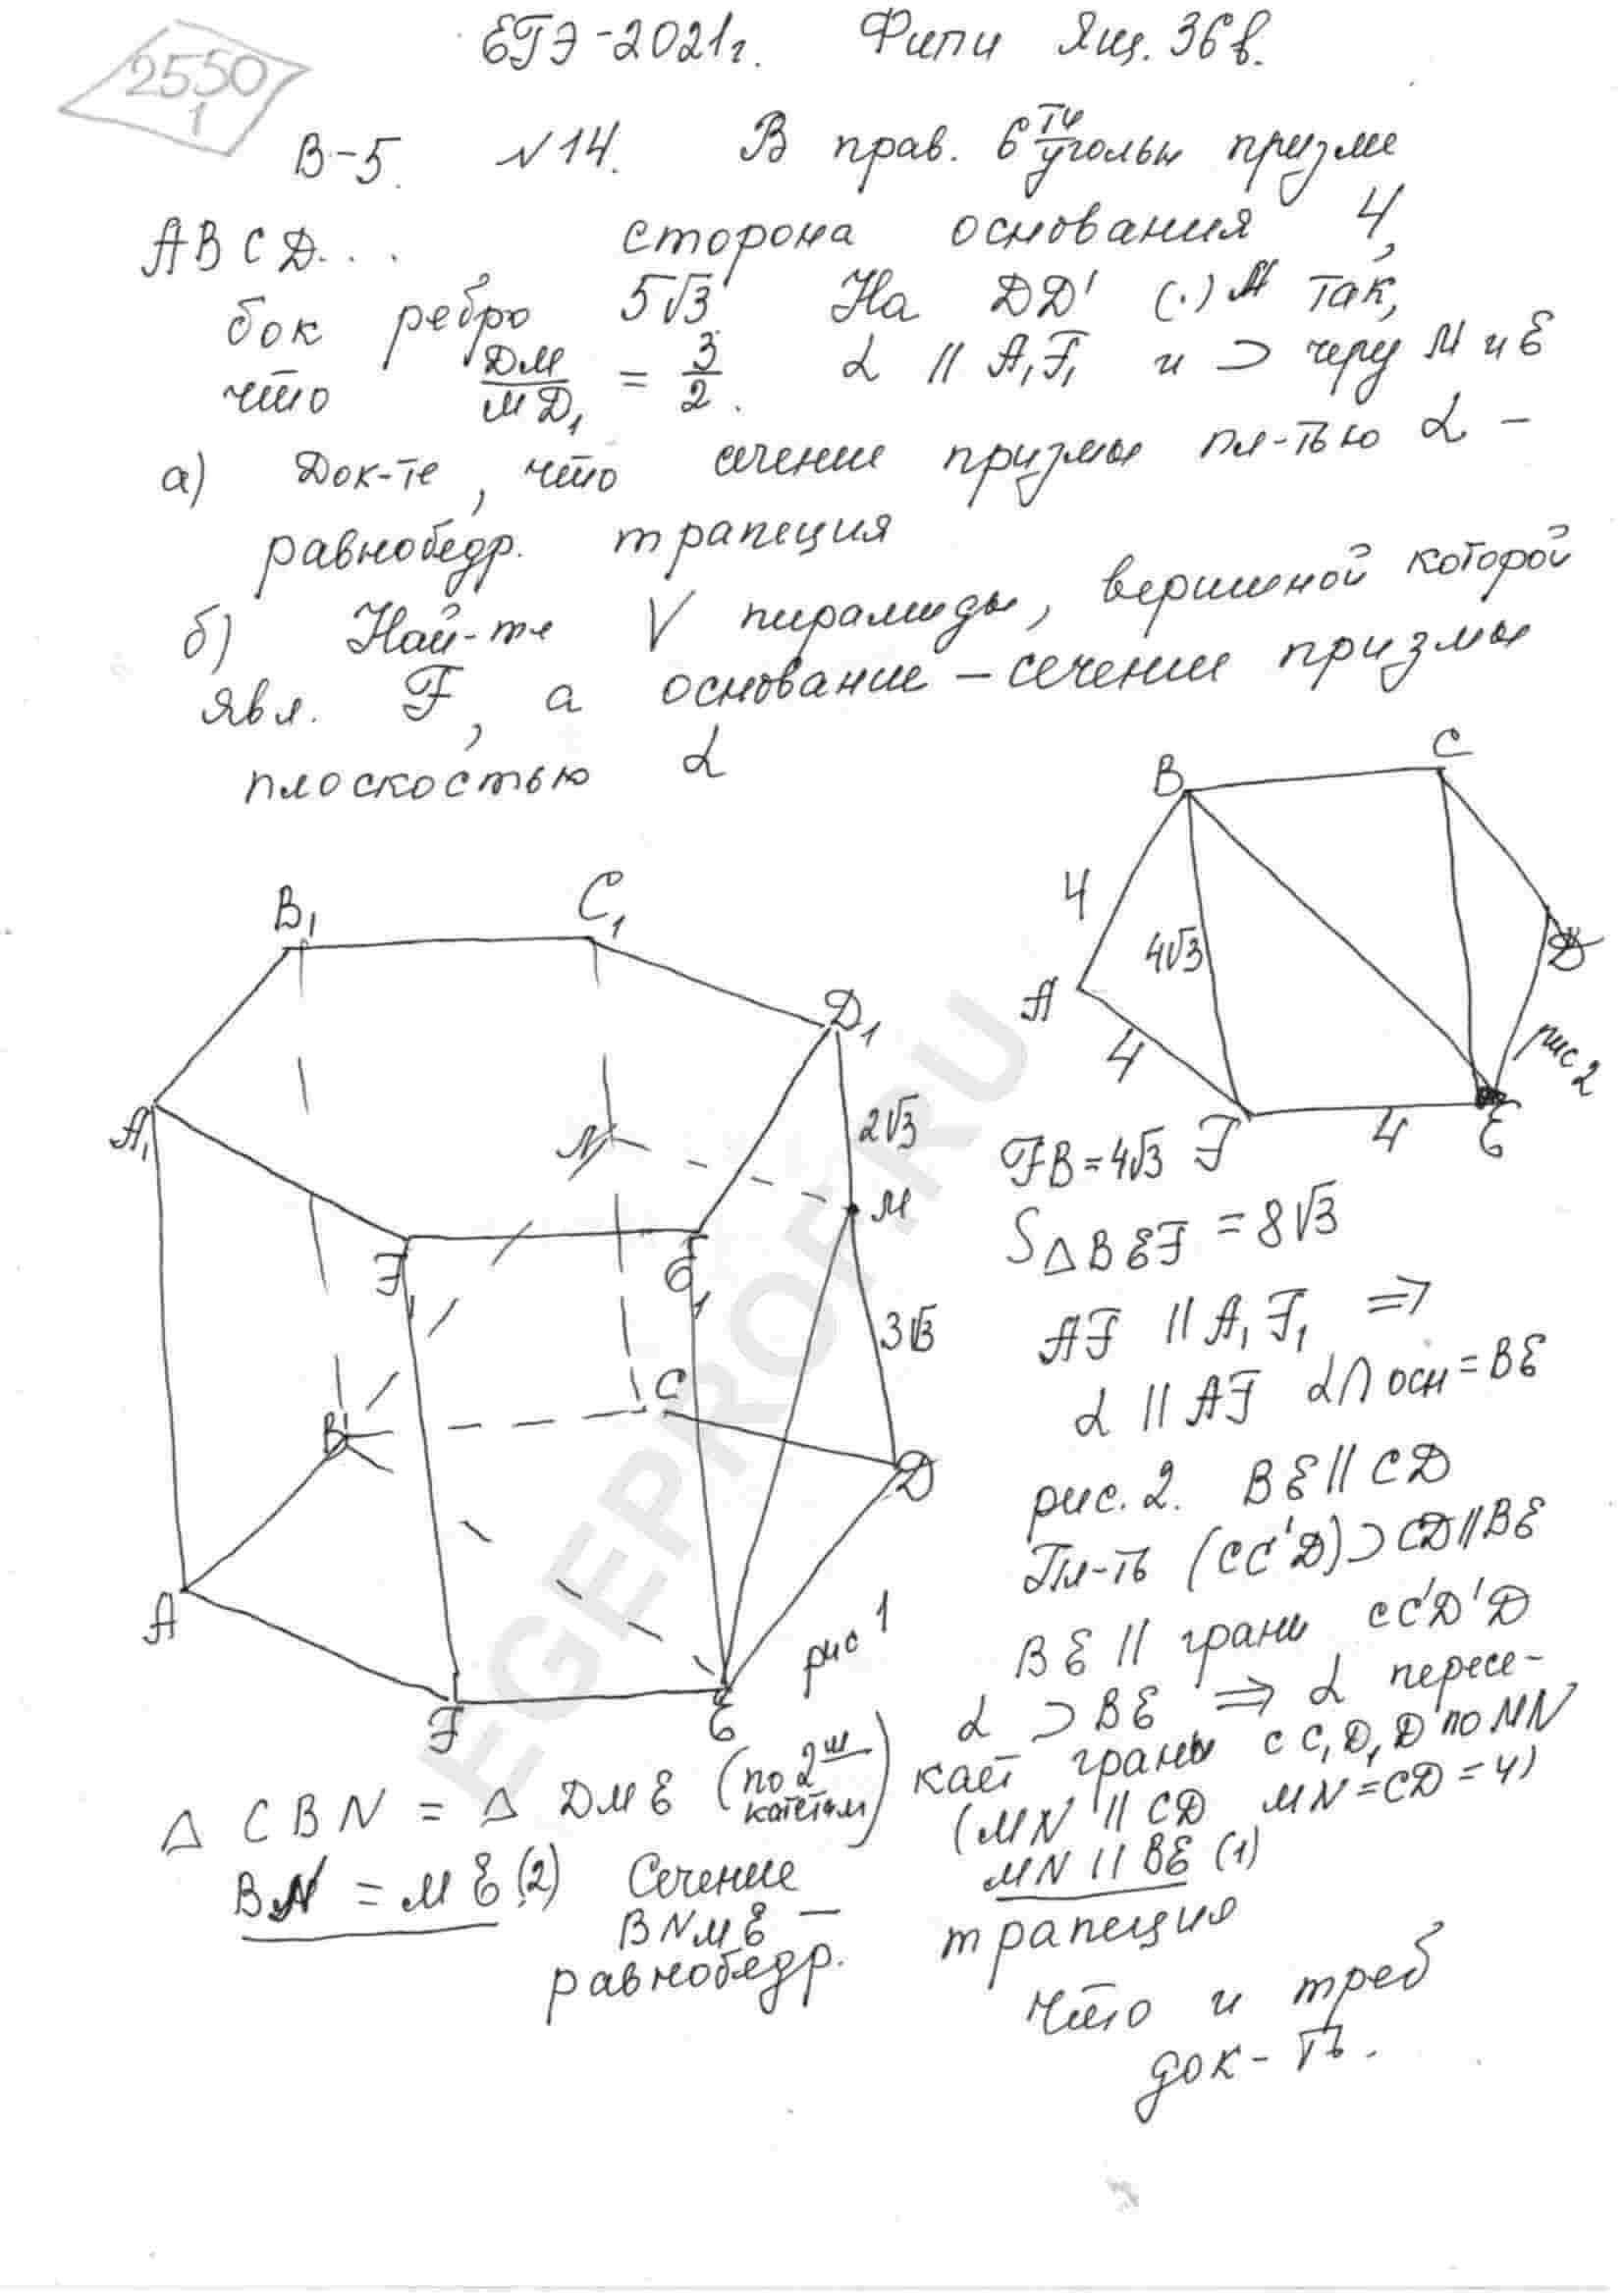 ЕГЭ-2021г. Фипи Ящ. 36 в.
2550
1
В-5. №14. В прав. 6 ти угольн призме
ABCD... сторона основания 4,
бок ребро 5√3 На DD' (·) M так,
что DM/MD₁ = 3/2. α || A₁F₁ и ⊃ через M и E
а) Док-те, что сечение призмы пл-тью α -
равнобедр. трапеция
б) Най-те V пирамиды, вершиной которой
явл. F, а основание - сечение призмы
плоскостью α
B C
4
4√3
A D
4
рис 2
F 4 E
B₁ C₁
D₁
A₁ 2√3
N M
F₁ E₁
3√3
C
B
D
A
рис 1
F E
FB = 4√3
S △ BEF = 8√3
AF || A₁F₁ ⇒
α || AF α ∩ осн = BE
рис. 2. BE || CD
Пл-ть (CC'D) ⊃ CD || BE
BE || грани CC'D'D
α ⊃ BE ⇒ α пересе-
кает грань CC₁D₁D по MN
(MN || CD MN = CD = 4)
MN || BE (1)
△ CBN = △ DME (по 2 м катетам)
BN = ME (2) Сечение
BNME -
равнобедр. трапеция
что и треб
док-ть.
EGEPROF.RU